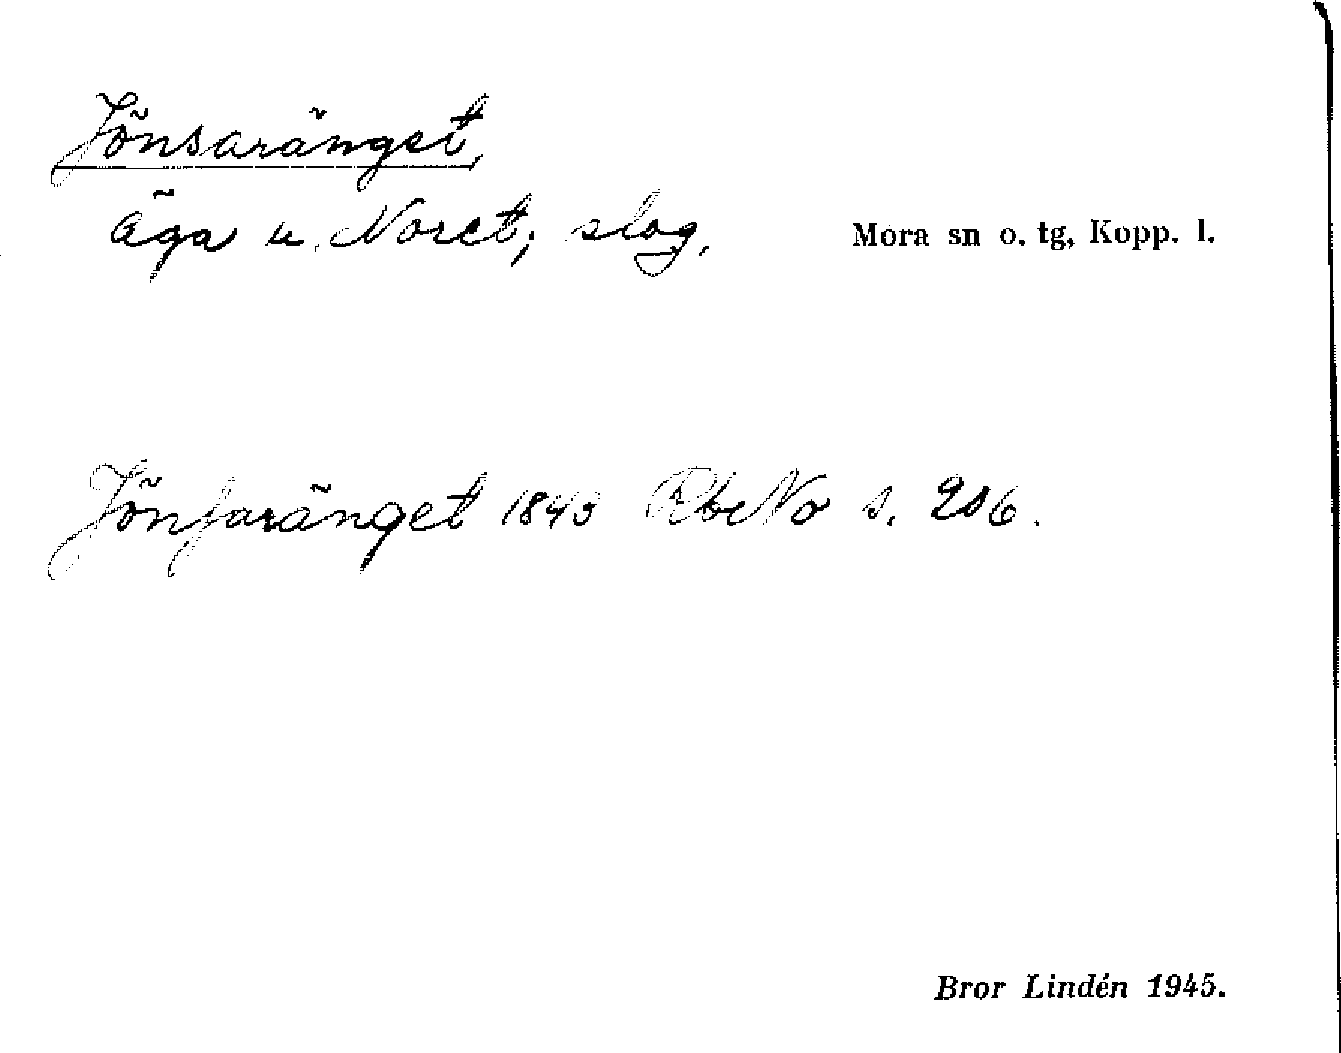 Jönsaränget,
äga u. Noret; slog. Mora sn o. tg, Kopp. l.
Jönsaränget 1843 RbNo s. 206.
Bror Lindén 1945.